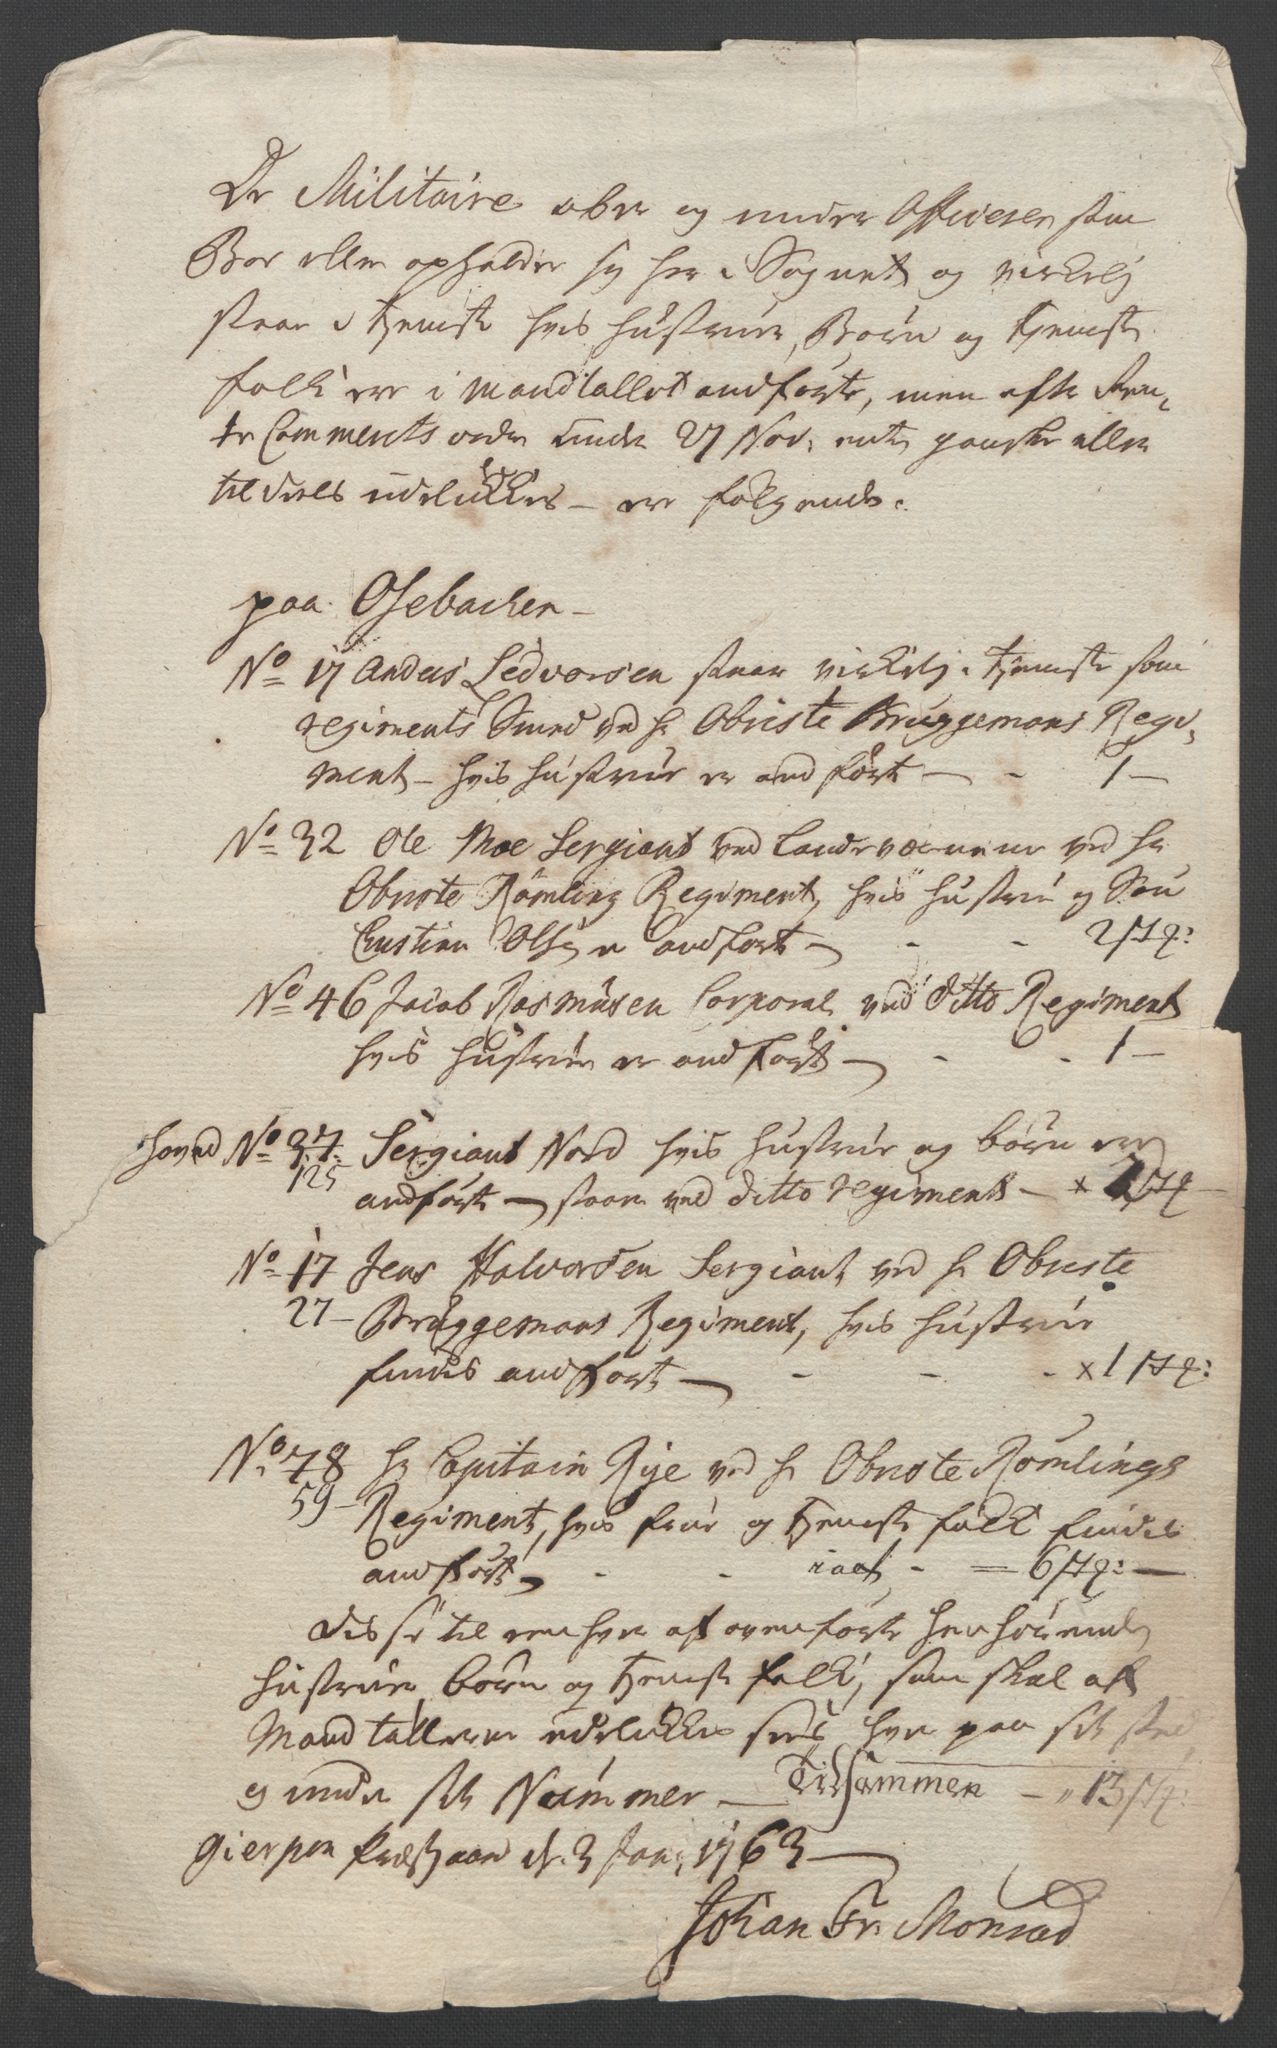 De Militaire ober og under Officerer som
Boe eller opholder sig her i Sognet og virkelig
staar i tjeneste hvis hustruer, Børn og tjeneste
folk ere i Mandtallet andførte, men efter Ren-
te Cammerets ordre under 27 Nov: enten ganske eller
til deels udelukkes – ere følgende.
paa Osebachen –
No 17 Anders Sedvorsen staar virkelig i tjeneste som
regiments Smed ved hr Obriste Bruggemans Regi-
ment – hvis hustrue er andført – - 1 –
No 32 Ole Moe Sergiant ved Landværnene ved hr
Obriste Römling Regiment, hvis hustrue og Søn
Christian Olsen er andført – - - 2 stk:
No 46 Jacob Rasmusen Corporal ved ditto Regiment
hvis hustrue er andført – - - 1 –
No 37. Sergiant Nord hvis hustrue og børn ere
125 andført – staar ved ditto regiment – x stk –
No 17 Jens Halvorsen Sergiant ved hr Obriste
27 – Bruggemans Regiment, hvis hustrue
findes andført – - - - x 1 stk:
No 78 hr Capitain Rye ved hr Obriste Römlings
59 – Regiment, hvis frue og tjeneste folk findes
andført – - - i alt - = 6 stk: –
disse til enhver af ovenførte henhørende
hustruer, børn og tjeneste folk, som skal af
Mandtallerne udelukkes sees hver paa sit sted
og under sit Nummer – Tilsammen – 13 stk:
Gierpen Præstgaard d. 3 Jan: 1763 –
Johan Fr. Monrad